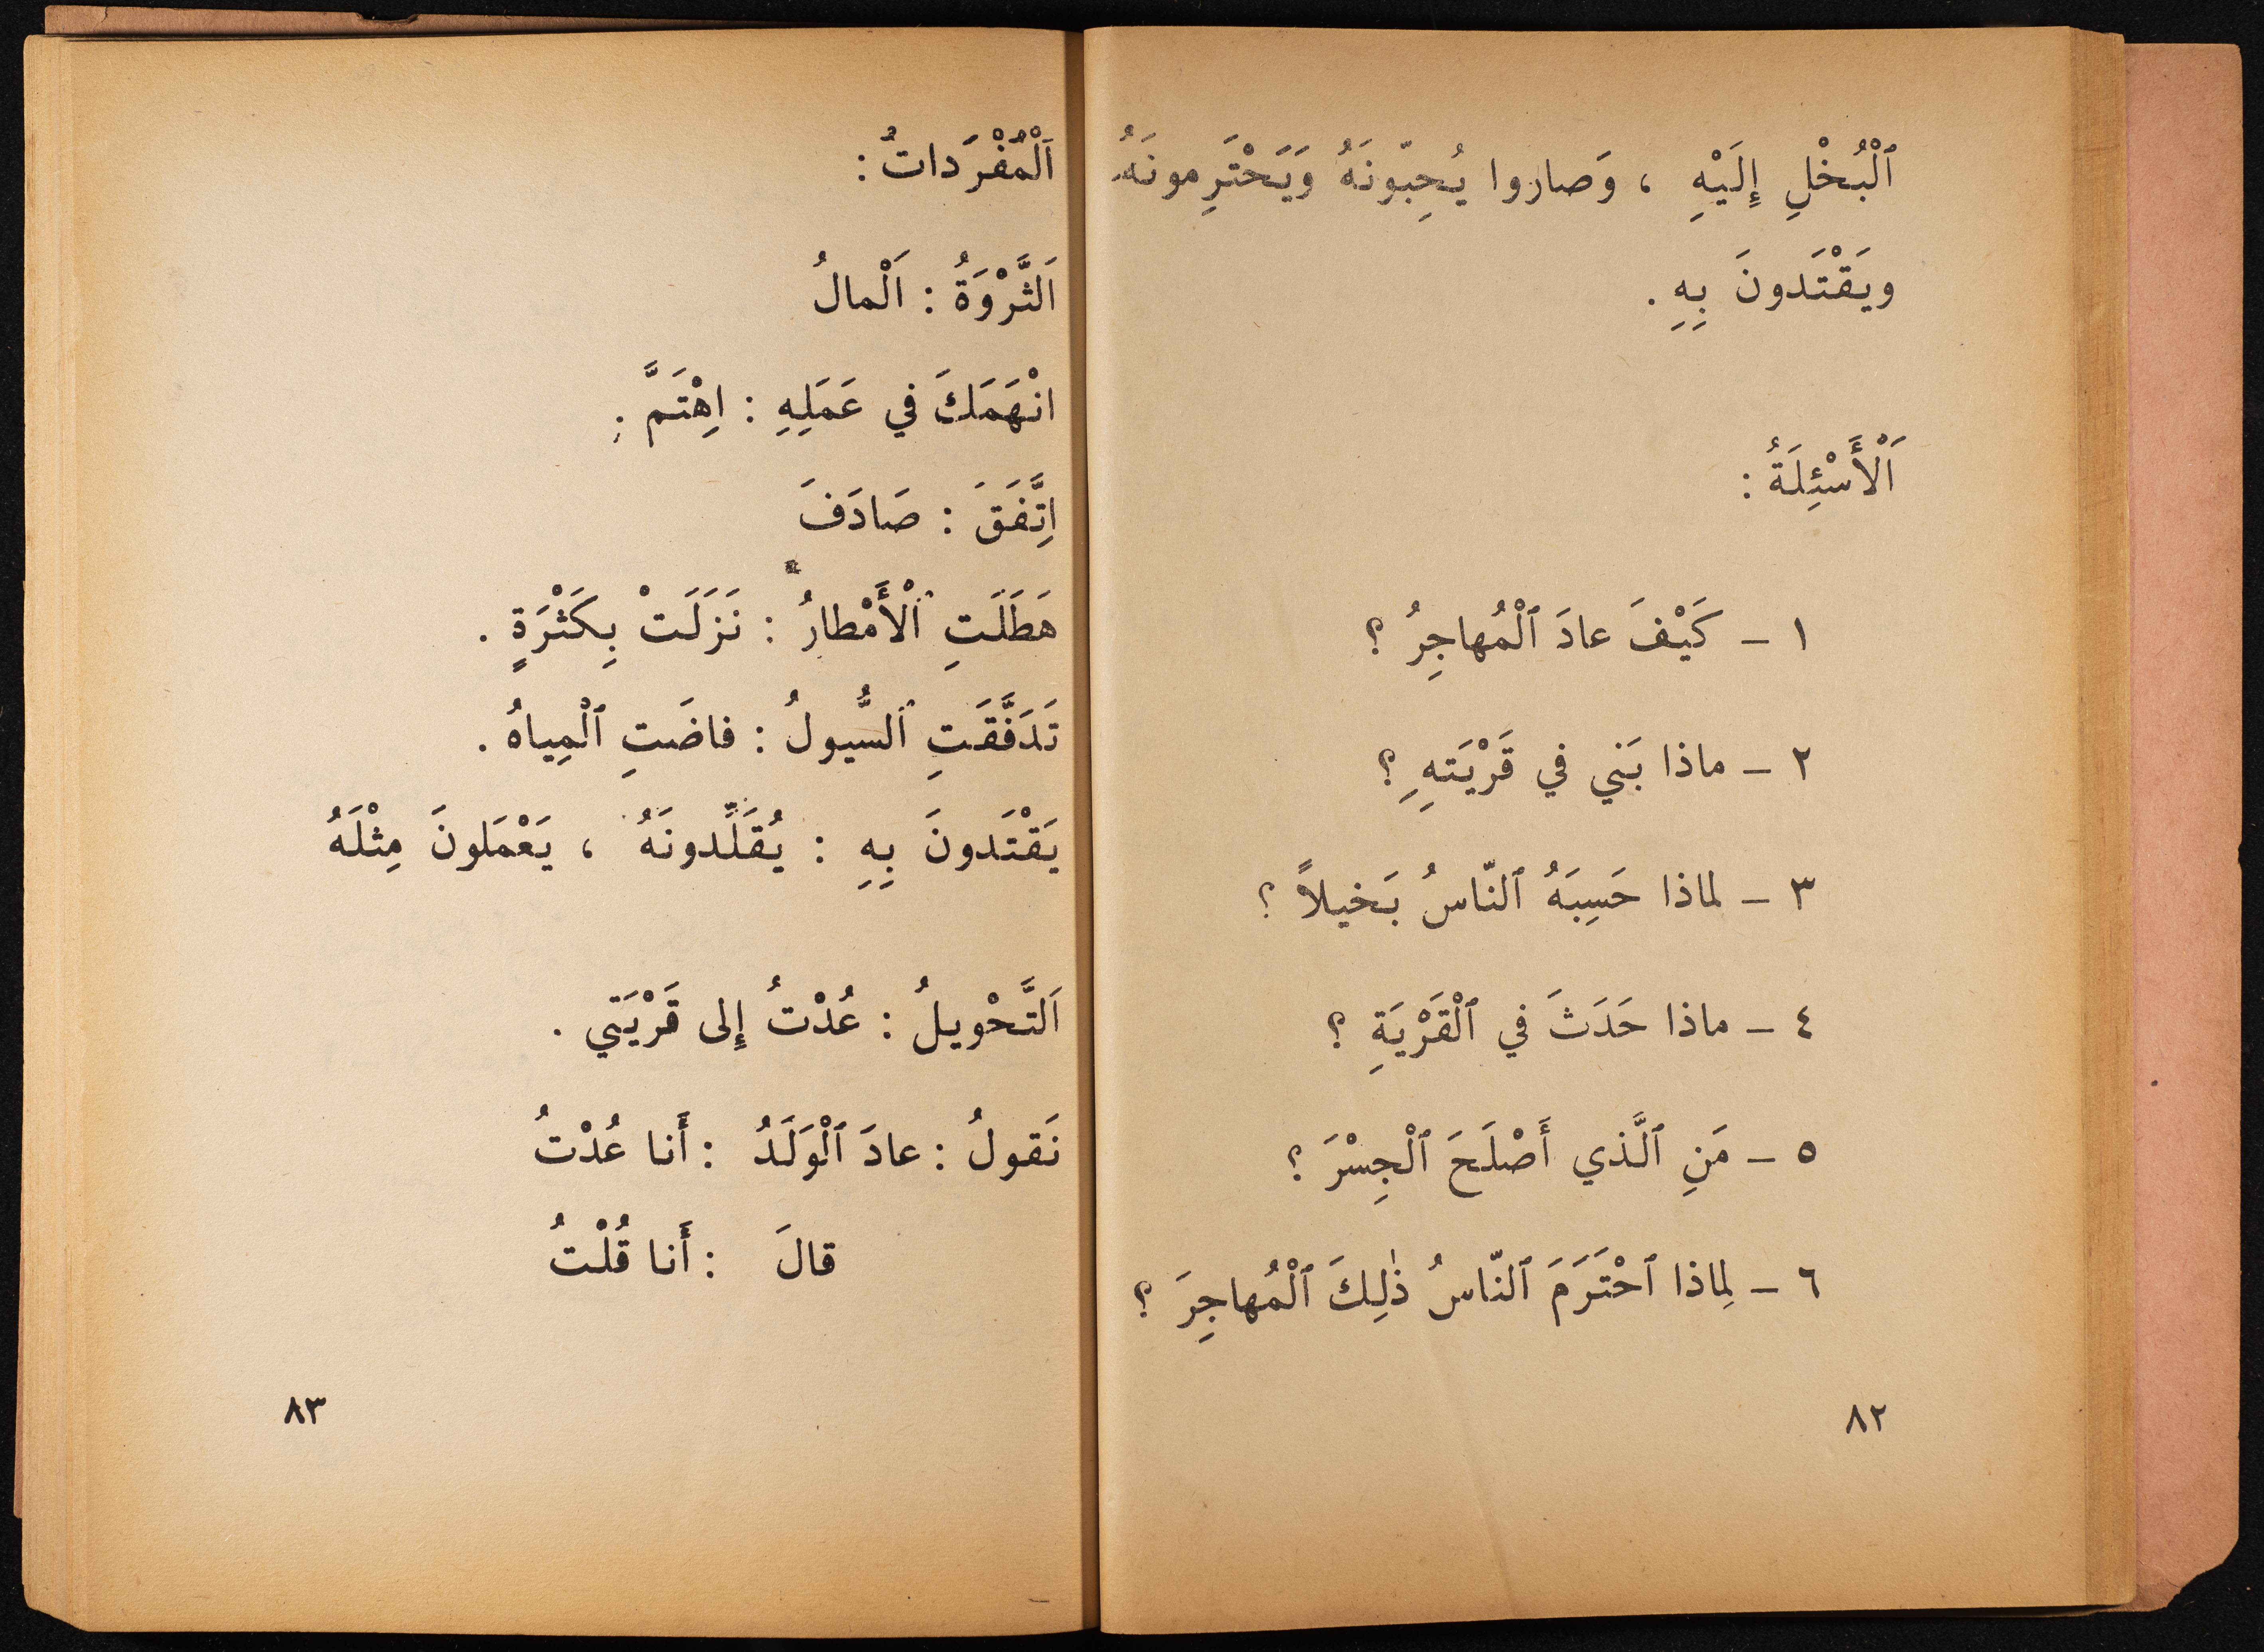 ٱلْبُخْلِ إِلَيْهِ ، وَصاروا يُحِبّونَهُ وَيَحْتَرِمونَهُ
ويَقْتَدونَ بِهِ .
اَلْأَسْئِلَةُ :
١ – كَيْفَ عادَ ٱلْمُهاجِرُ ؟
٢ – ماذا بَني في قَرْيَتِهِ ؟
٣ – لماذا حَسِبَهُ ٱلنّاسُ بَخيلاً ؟
٤ – ماذا حَدَثَ في ٱلْقَرْيَةِ ؟
٥ – مَنِ ٱلَّذي أَصْلَحَ ٱلْجِسْرَ ؟
٦ – لِماذا ٱحْتَرَمَ ٱلنّاسُ ذٰلِكَ ٱلْمُهاجِرَ ؟
٨٢
اَلْمُفْرَداتُ :
اَلثَّرْوَةُ : اَلْمالُ
انْهَمَكَ في عَمَلِهِ : اِهْتَمَّ .
اِتَّفَقَ : صَادَفَ
هَطَلَتِ ٱلْأَمْطارُ : نَزَلَتْ بِكَثْرَةٍ .
تَدَفَّقَتِ ٱلسُّيولُ : فاضَتِ ٱلْمِياهُ .
يَقْتَدونَ بِهِ : يُقَلِّدونَهُ ، يَعْمَلونَ مِثْلَهُ
اَلتَّحْويلُ : عُدْتُ إِلى قَرْيَتي .
نَقولُ : عادَ ٱلْوَلَدُ : أَنا عُدْتُ
قالَ : أَنا قُلْتُ
٨٣